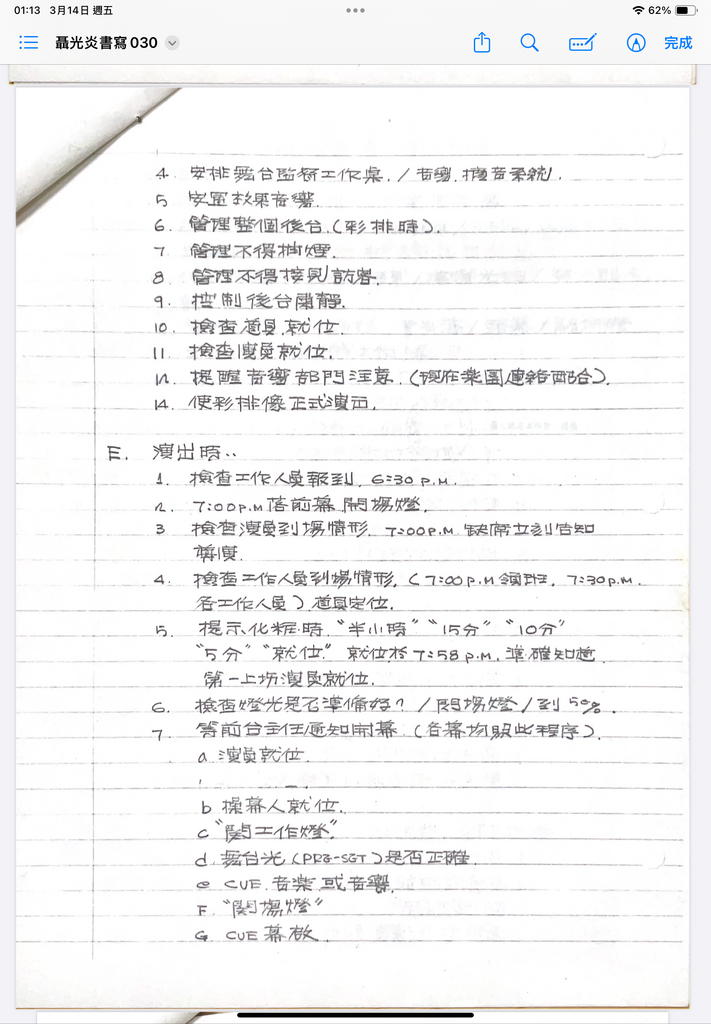 01:13 3月14日 週五
62%
聶光炎書寫 030
完成
4. 安排舞台監督工作桌. / 音響. 擴音系統.
5 安置效果音響.
6. 管理整個後台. (彩排時).
7. 管理不得抽煙.
8. 管理不得接見訪客.
9. 控制後台肅靜.
10. 檢查道具就位.
11. 檢查演員就位.
12. 提醒音響部門注意. (現在樂團連絡配合).
14. 使彩排像正式演出.
E. 演出時..
1. 檢查工作人員報到. 6:30 P.M.
2. 7:00P.M 落前幕 開場燈.
3 檢查演員到場情形. 7:00P.M. 缺席立刻告知
導演.
4. 檢查工作人員到場情形. ( 7:00 P.M 領班. 7:30P.M.
各工作人員 ) 道具定位.
5. 提示化粧時. “半小時” “15分” “10分”
“5分” “就位.” 就位於 7:58 P.M. 準確知道
第一上場演員就位.
6. 檢查燈光是否準備好? / 關場燈 / 到 50%.
7. 等前台主任通知開幕. (各幕均照此程序).
a 演員就位.
b 操幕人就位.
c “關工作燈”
d. 舞台光 (PRE-SET) 是否正確.
e CUE. 音樂 或音響.
F. “關場燈”
G. CUE 幕啟.